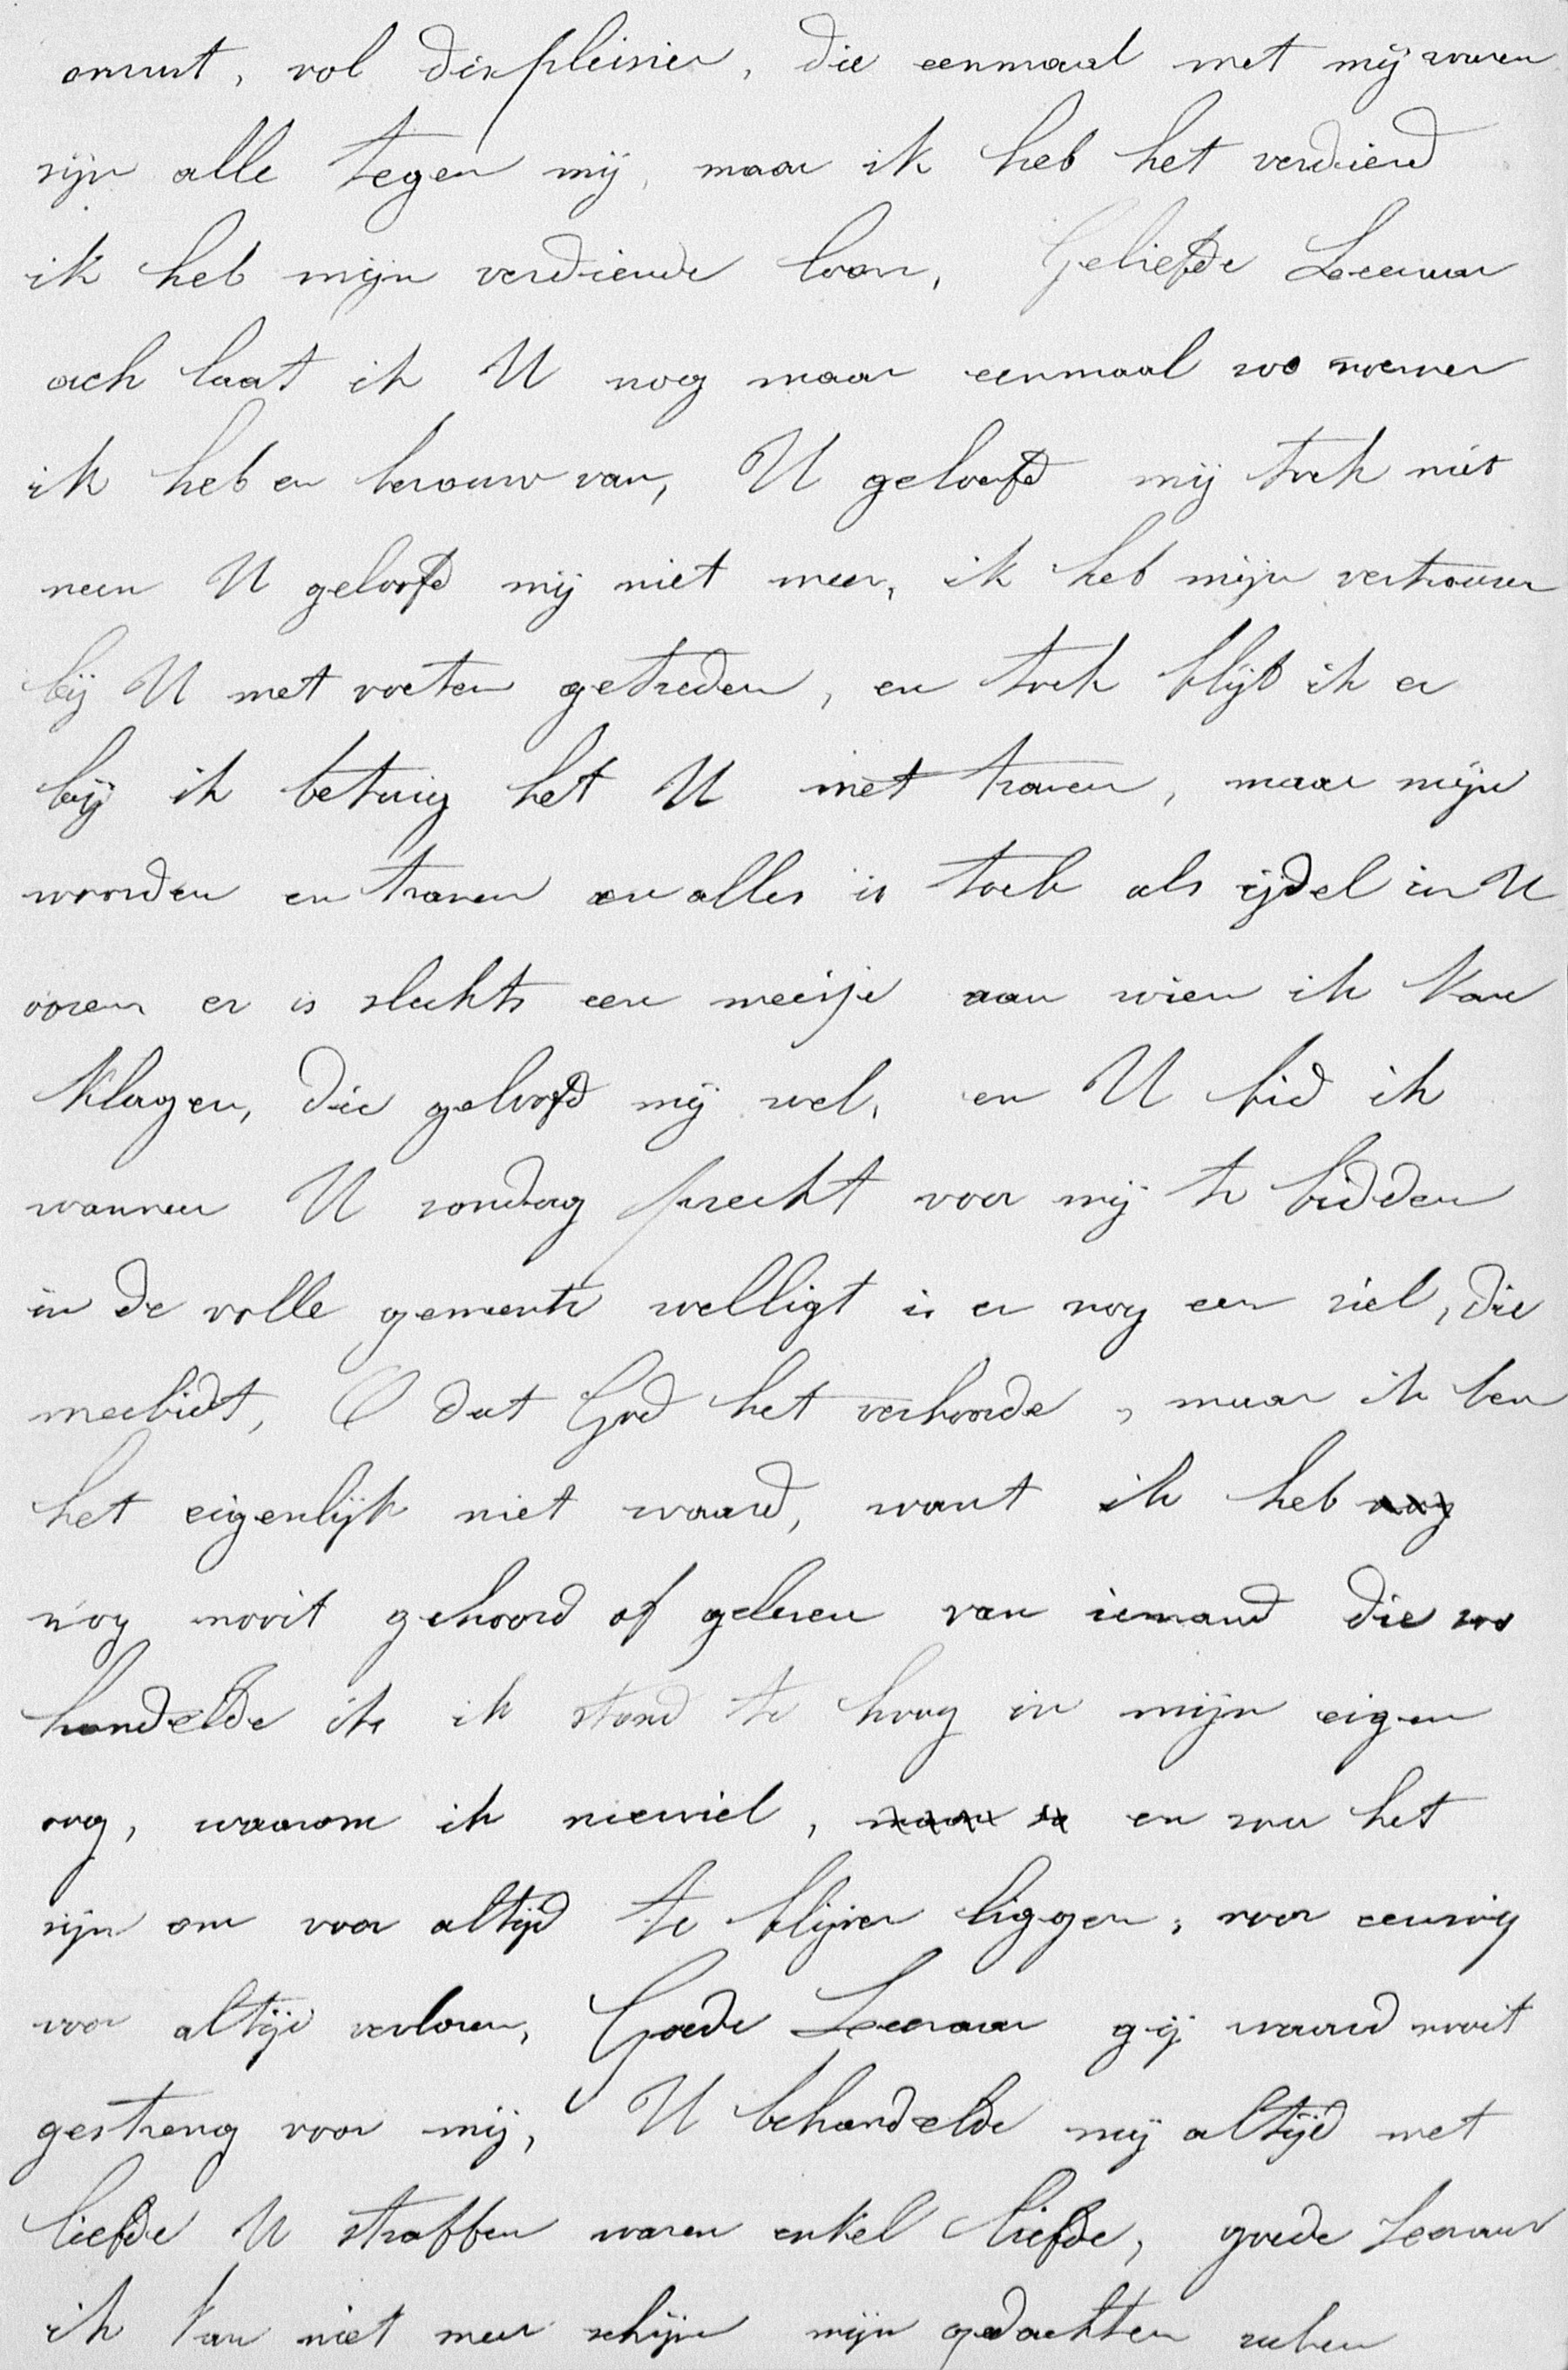 onrust, vol displeisier, die eenmaal met mij waren
zijn alle tegen mij, maar ik heb het verdiend
ik heb mijn verdiende loon, Geliefde Leeraar
ach laat ik U nog maar eenmaal zoo noemen
ik heb er berouw van, U geloofd mij toch niet
neen U geloofd mij niet meer, ik heb mijn vertrouwen
bij U met voeten getreden, en toch blijf ik er
bij ik betuig het U met tranen, maar mijn
woorden en tranen en alles is toch als ijdel in U
ooren er is slechts een meisje aan wien ik kan
klagen, die geloofd mij wel, en U bid ik
wanneer U zondag preekt voor mij te bidden
in de volle gemeente welligt is er nog een ziel, die
meebidt, O dat God het verhoorde, maar ik ben
het eigenlijk niet waard, want ik heb nog
nog nooit gehoord of gelezen van iemand die zoo
handelde ik ik stond te hoog in mijn eigen
oog, waarom ik neerviel, en zou het
zijn om voor altijd te blijven liggen, voor eeuwig
voor altijd verloren, Goede Leeraar gij waard nooit
gestreng voor mij, U behandelde mij altijd met
liefde U straffen waren enkel liefde, goede Leeraar
ik kan niet meer schijven mijn gedachten